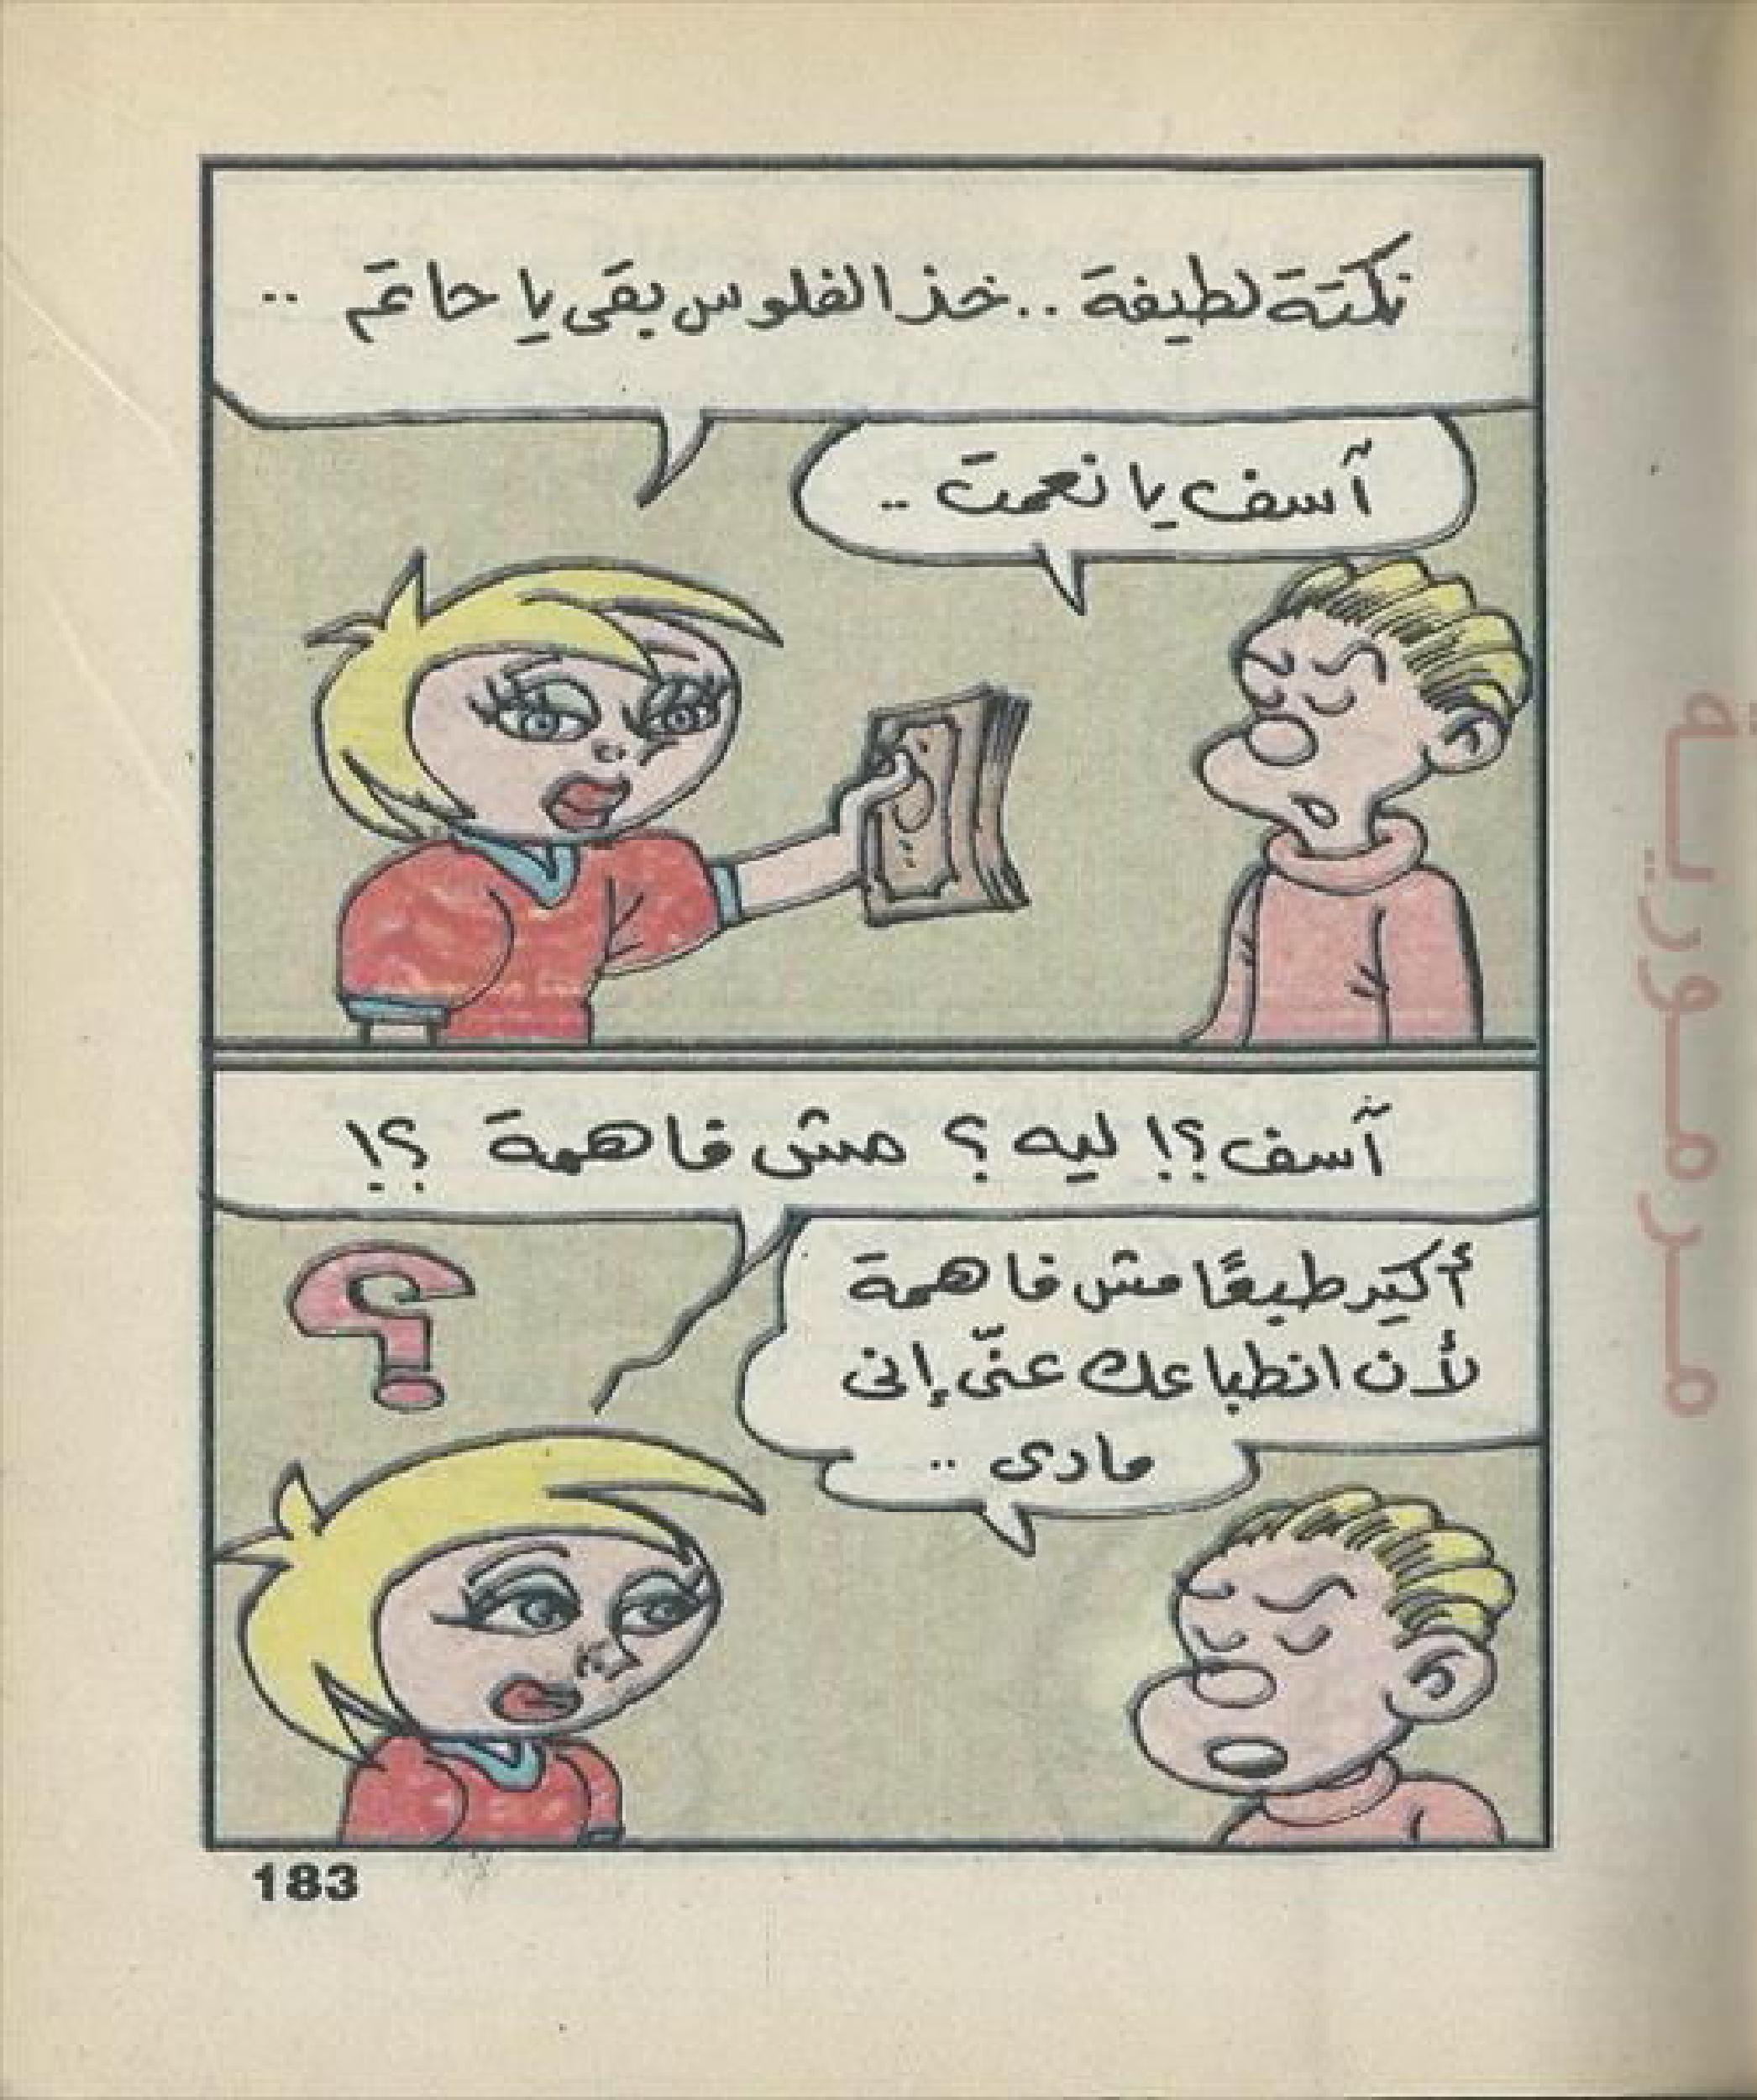 نكتة لطيفة .. خذ الفلوس بقى يا حاتم ..
آسف يا نعمت ..
آسف؟! ليه؟ مش فاهمة ؟!
أكيد طبعًا مش فاهمة
لأن انطباعك عنّى إنى
مادى ..
183
مرمورية